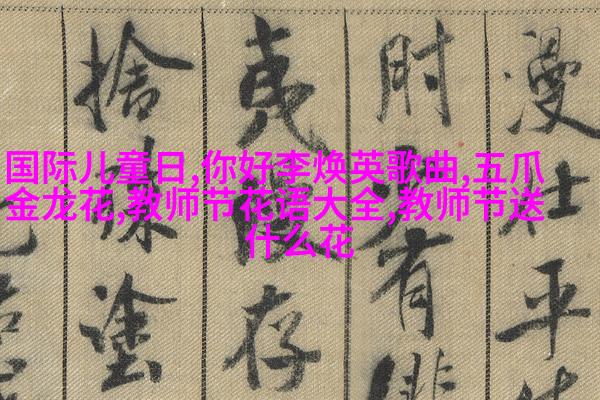 国际儿童日,你好李焕英歌曲,五爪
金龙花,教师节花语大全,教师节送
什么花
漫仕平
有
夷存
捨塗